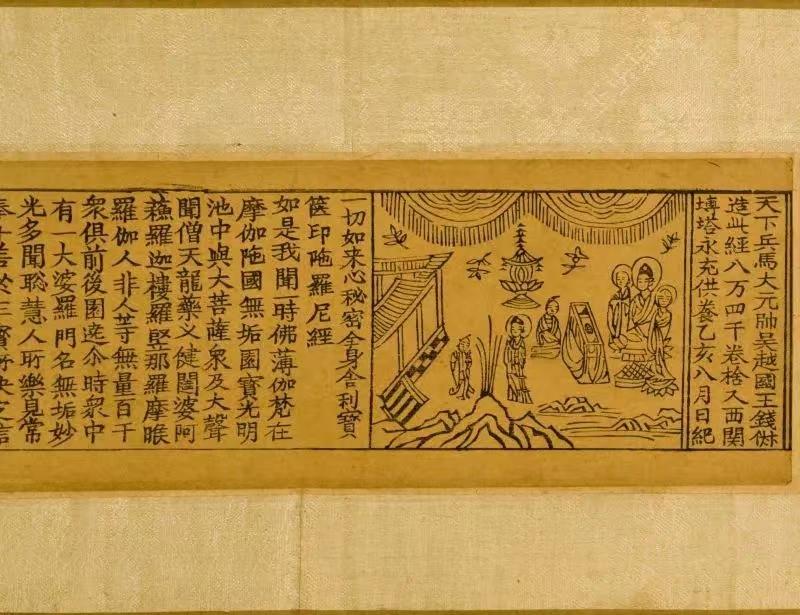 天下兵馬大元帥吳越國王錢俶
造此經八万四千卷捨入西関
塼塔永充供養乙亥八月日紀
一切如来心秘密全身舎利寶
篋印陁羅尼經
如是我聞一時佛薄伽梵在
摩伽陁國無垢園寶光明
池中與大菩薩衆及大聲
聞僧天龍藥叉健闥婆阿
蘓羅迦樓羅緊那羅摩睺
羅伽人非人等無量百千
衆俱前後圍遶尒時衆中
有一大婆羅門名無垢妙
光多聞聡慧人所樂見常
奉十善於三寳所決之信